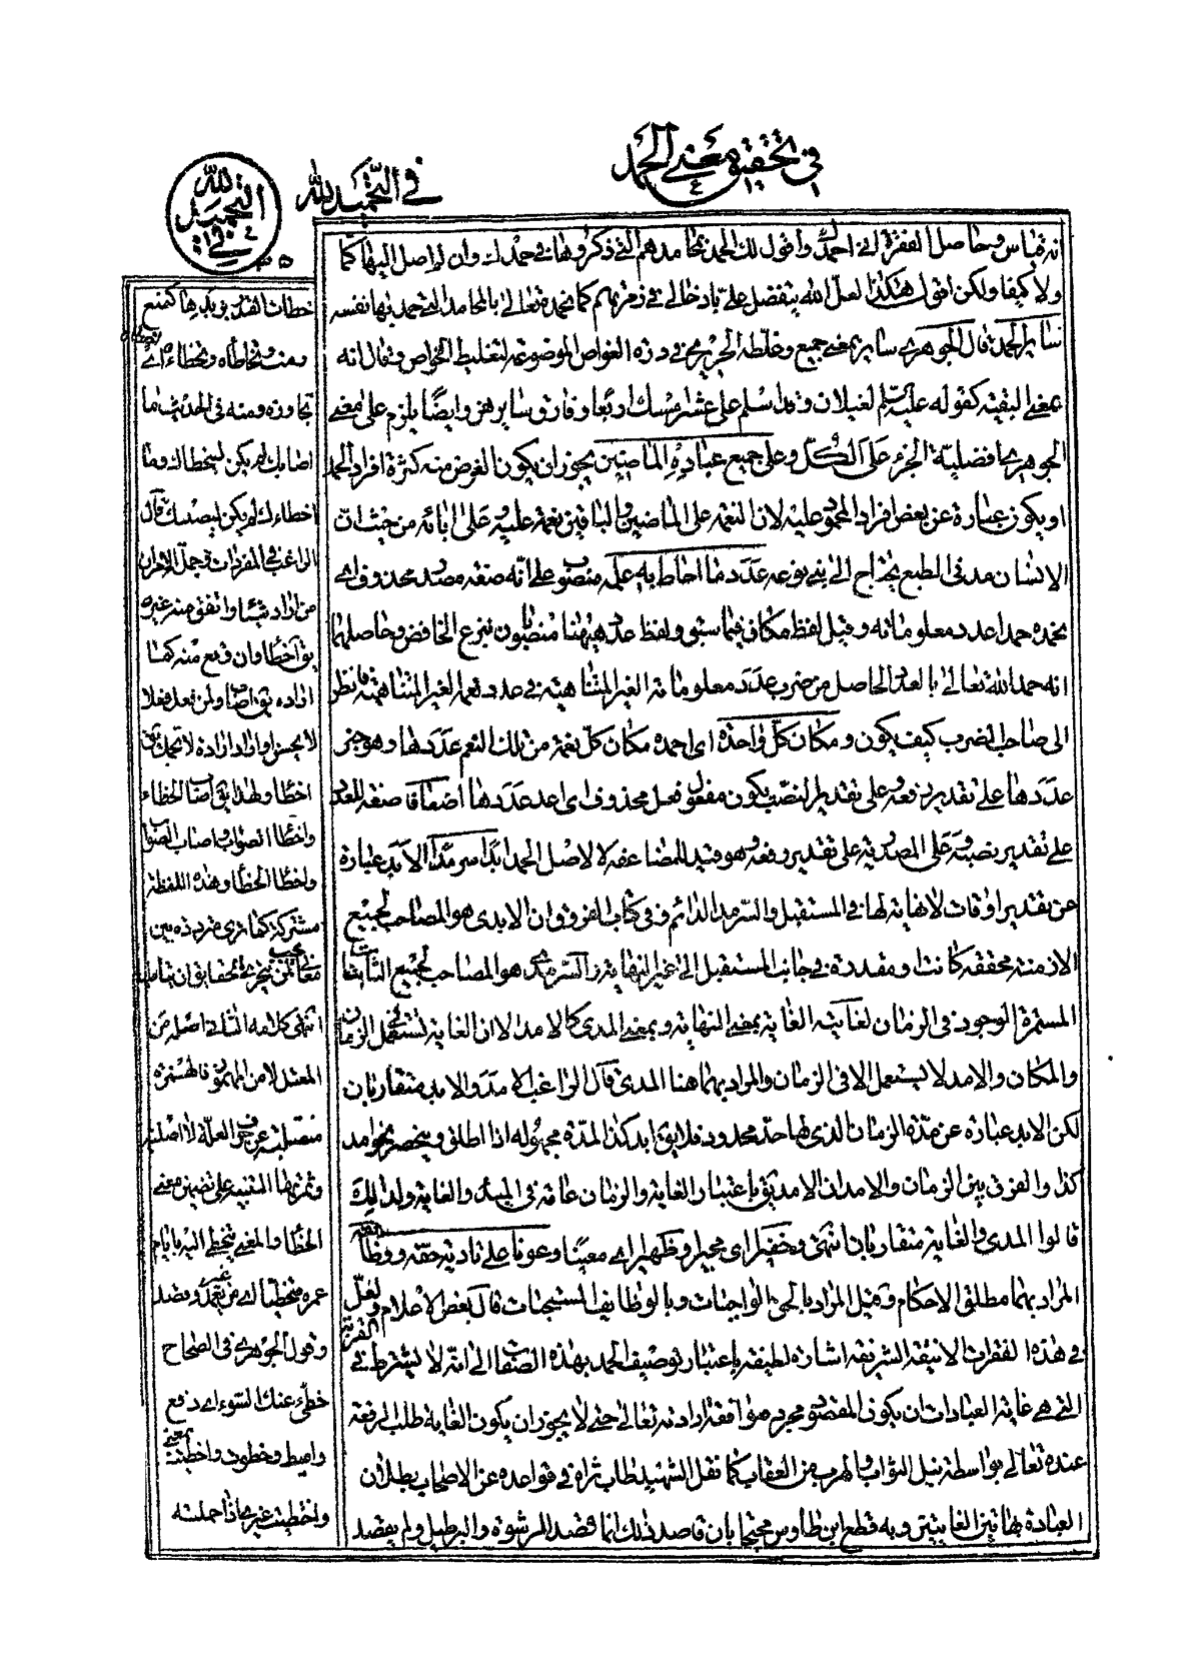 في تحقيق معنى الحمد
في التحميد لله
في التحميد لله
انه تقاس وحاصل الفقرة اني احمدك واقول لك الحمد بمحامدهم التي ذكروها في حمد له وان لم اصل اليها كما
ولا كيفا ولكن اقول هكذا لعل الله يتفضل علي بادخالي في زمرتهم كما نحمده تعالى بالمحامد التي حمد بها نفسه
سائر الحمد قال الجوهري سائر بمعنى جميع وغلطه الحريري في درة الغواص الموضوعة لتغليط الخواص وقال انه
بمعنى البقية كقوله عليه السلم لغيلان وقد اسلم على عشر امسك اربعا وفارق سائرهن وايضا يلزم على معنى
الجوهري افضلية الجزء على الكل وعلى جميع عباده الماضين يجوز ان يكون الغرض منه كثرة افراد الحمد
او يكون عبارة عن بعض افراد المحمود عليه لان النعمة على الماضين والباقين نعمة عليه وعلى ابائه من حيث ان
الانسان مدني الطبع يحتاج الى بني نوعه عدد ما احاط به علمه منصوب على انه صفة مصدر محذوف اي
نحمده حمدا عدد معلوماته وقيل لفظ مكان فيما سبق ولفظ عدد ههنا منصوبان بنزع الخافض وحاصلهما
انه حمد الله تعالى بالعدد الحاصل من ضرب عدد معلوماته الغير المتناهية في عدد نعمه الغير المتناهية فانظر
الى صاحب الضرب كيف يكون ومكان كل واحدة اي احمده مكان كل نعمة من تلك النعم عددها وهو خبر
عددها على تقدير رفعه وعلى تقدير النصب يكون مفعول فعل محذوف اي اعد عددها اضعافا صفة للعدد
على تقدير نصبه وعلى المصدرية على تقدير رفعه وهو قيد للمضاعفة لا لاصل الحمد ابدا سرمدا الابد عبارة
عن تقدير اوقات لا نهاية لها في المستقبل والسرمد الدائم وفي كتاب الفروق ان الابدي هو المصاحب لجميع
الازمنة محققة كانت او مقدرة في جانب المستقبل الى غير النهاية والسرمدي هو المصاحب لجميع الثابتات
المستمرة الوجود في الزمان لغايته الغاية بمعنى النهاية وبمعنى المدى كالامد الا ان الغاية تستعمل في الزمان
والمكان والامد لا يستعمل الا في الزمان والمراد بهما هنا المدى قال الراغب الامد والابد متقاربان
لكن الابد عبارة عن مدة الزمان الذي لها حد محدود فلا يق ابد كذا لمدة مجهوله اذا اطلق وينحصر نحو امد
كذا والفرق بين الزمان والامد ان الامد يق باعتبار الغاية والزمان عامة في المبدء والغاية ولذلك
قالوا المدى والغاية متقاربان انتهى وخفيرا اي مجيرا وظهيرا اي معينا وعونا على تادية حقه ووظائفه
المراد بهما مطلق الاحكام وقيل المراد بالحق الواجبات وبالوظايف المستحبات قال بعض الاعلام ولعل
في هذه الفقرات الانيقة الشريفة اشارة لطيفة باعتبار توصيف الحمد بهذه الصفات الى انه لا يشترط في القربة
التي هي غاية العبادات ان يكون المقصود مجرد موافقة ارادته تعالى حتى لا يجوز ان يكون الغاية طلب الرفعة
عنده تعالى بواسطة نيل الثواب والهرب من العقاب كما نقل الشهيد طاب ثراه في قواعده عن الاصحاب بطلان
العبادة بهاتين الغايتين وبه قطع ابن طاوس محتجا بان قاصد ذلك انما قصد الرشوة والبرطيل ولم يقصد
خطات القدر بوبدها كمنع
ومنه وتخاطاه وتخطاه اي
تجاوزه ومنه في الحديث ما
اصابك لم يكن ليخطاك وما
اخطاءك لم يكن ليصيبك قال
الراغب في المفردات وجملة الامر ان
من اراد شيئا واتفق منه غيره
يق اخطا وان وقع منه كما
اراده يق اصاب ولمن فعل فعلا
لا يحسن او اراد ارادة لا تجمل يق
اخطا ولهذا يق اصاب الخطاء
واخطا الصواب واصاب الصواب
واخطا الخطا وهذه اللفظة
مشتركة كما ترى مترددة بين
معان يجب لمن يتحرى الحقايق ان يتاملها
انتهى كلامه
المعتل لا من المهموز فالهمزة
منقلبة عن حرف العلة لا اصلية
الخطا والمعنى يتخطى اليه بايام
عمره متخطيا اي من غير تعمد وقصد
وقول الجوهري في الصحاح
خطي عنك السوء اي دفع
واميط وخطوت واختطيت بمعنى
واخطيت غيري اذا حملته